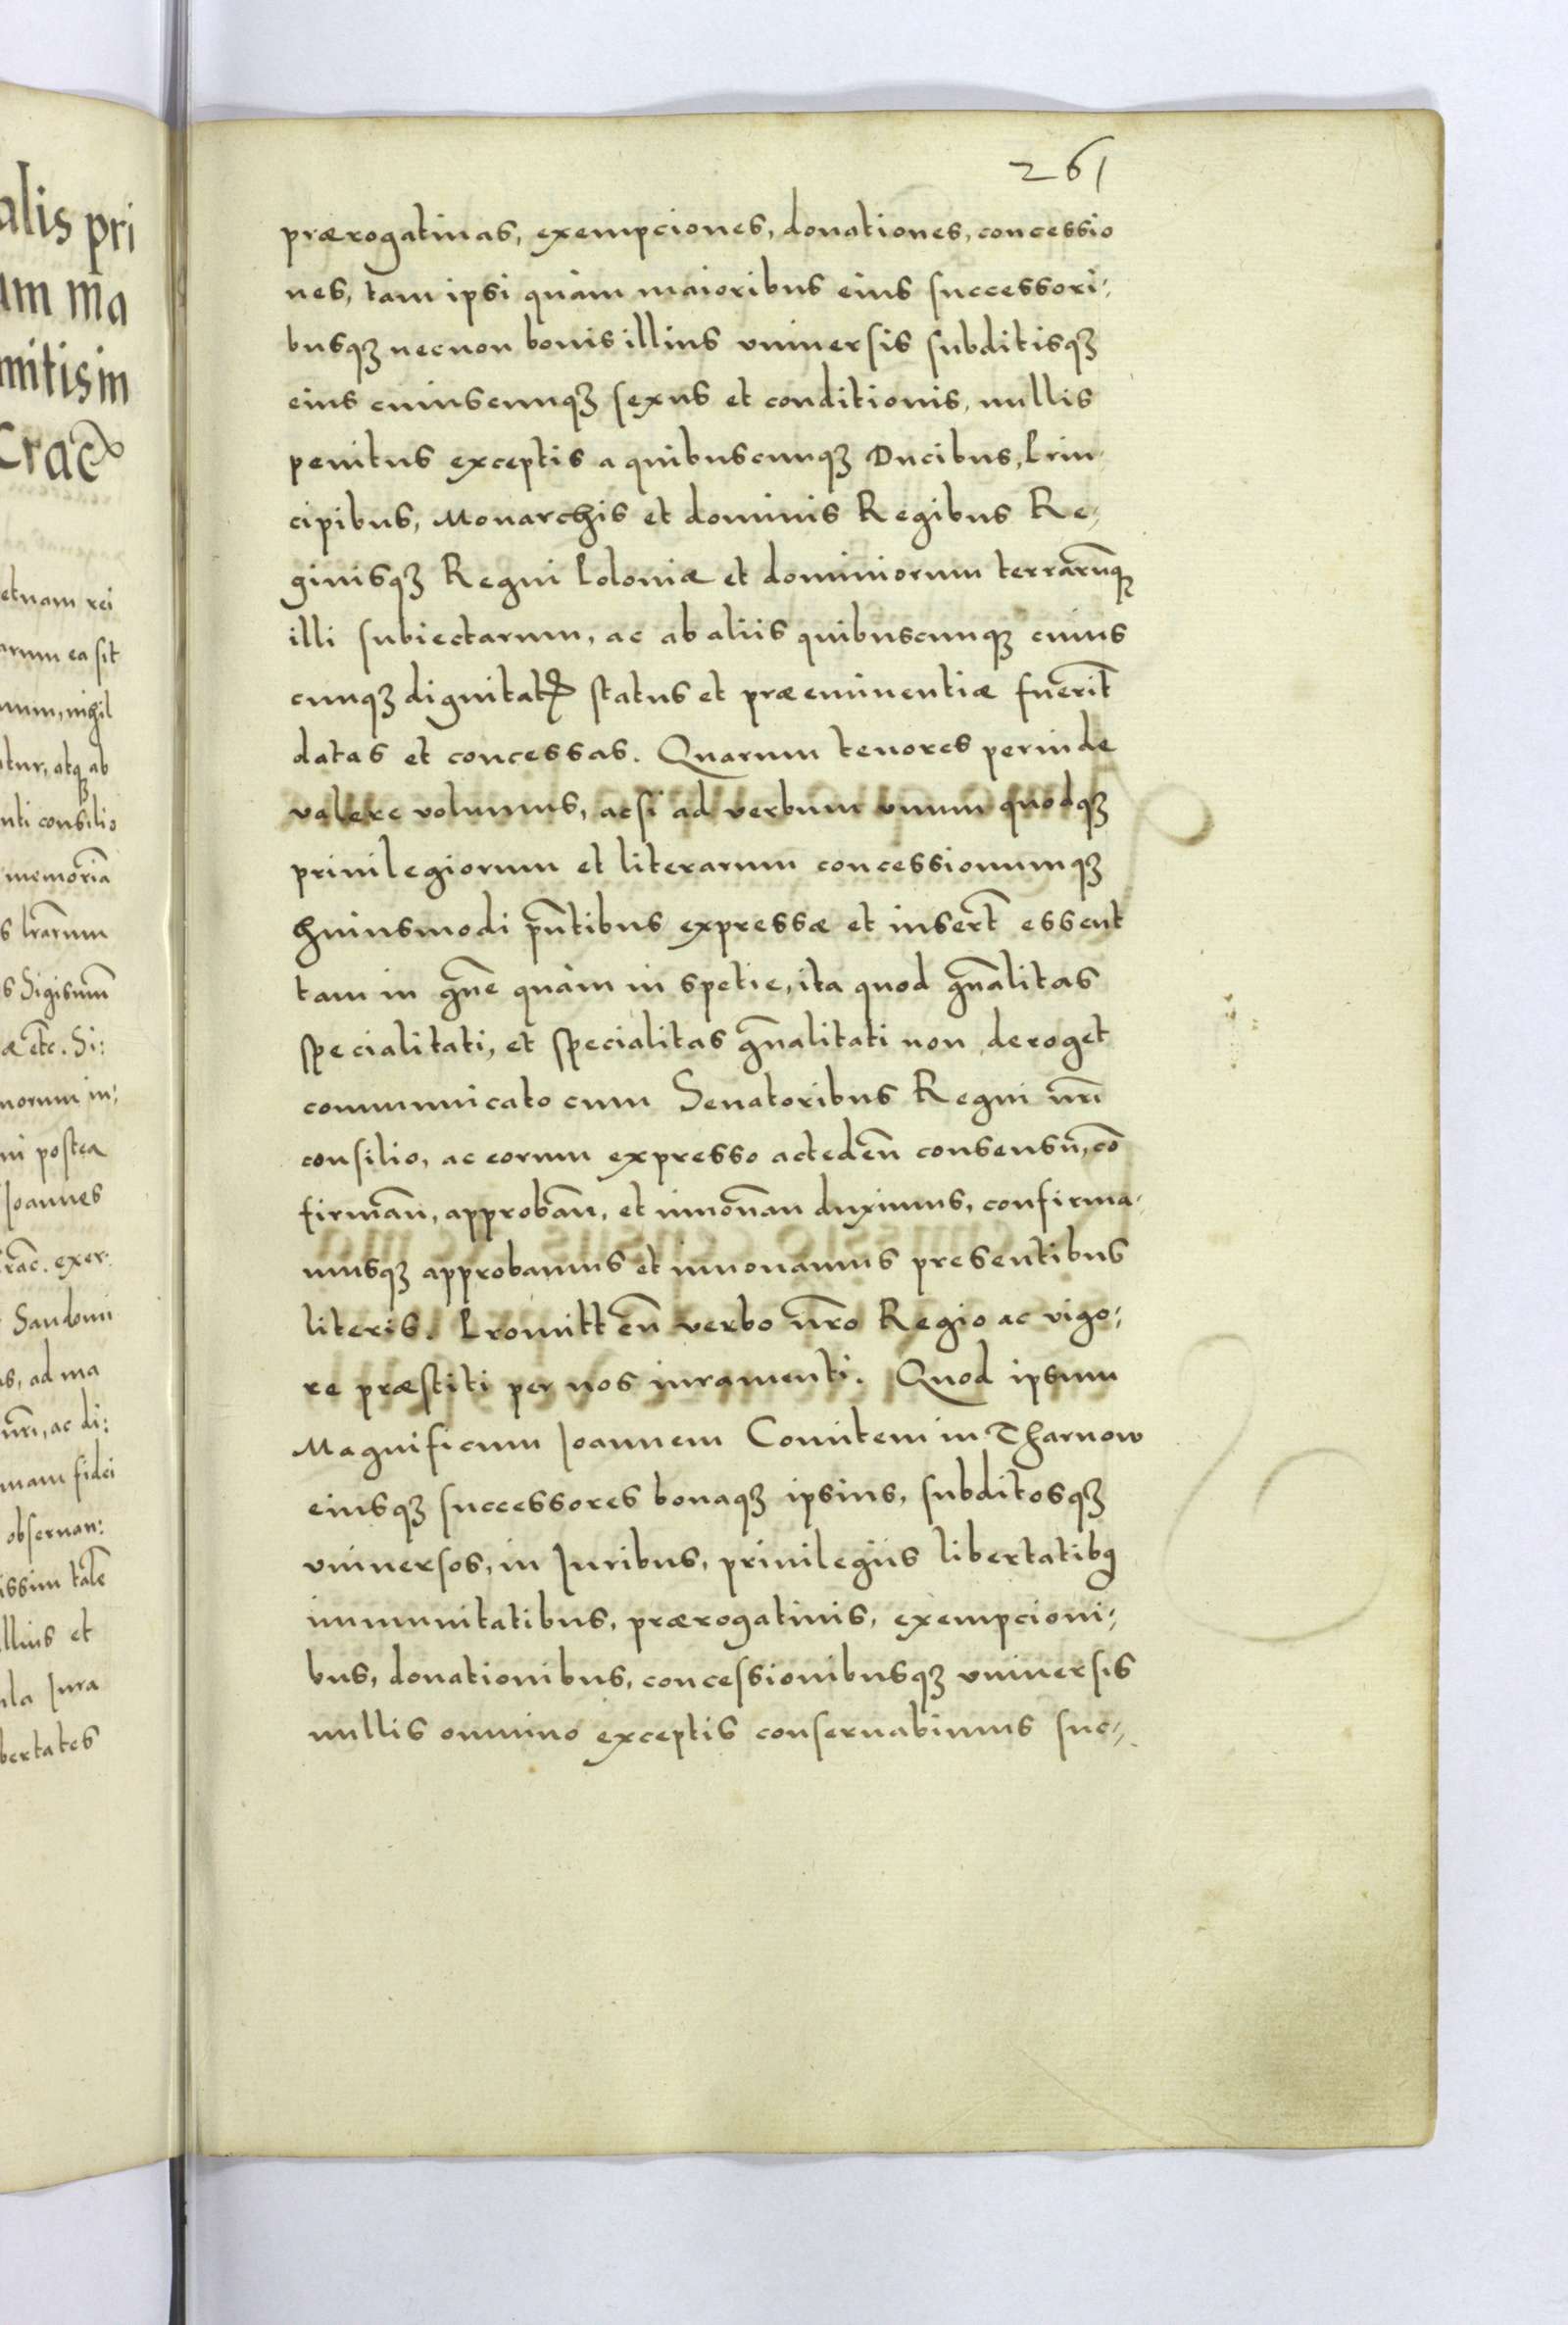 alis pri
um ma
mitis in
Crac̃
etuam rei
arum ea sit
num, nihil
atur, atqꝫ ab
nti consilio
memoriã
s lrãrum
s Sigismũ
æ etc̃. Si:
norum in:
ni postea
Joannes
rac̃. exer:
Sandomi
us, ad ma
nrĩ, ac di:
mam fidei
obseruan:
issim talẽ
illius et
ula Jura
bertates
261
prærogatiuas, exempciones, donationes, concessio
nes, tam ipsi quàm maioribus eius successori:
busqꝫ necnon bonis illius vniuersis subditisqꝫ
eius cuiuscunqꝫ sexus et conditionis, nullis
penitus exceptis a quibuscunqꝫ Ducibus, Prin
cipibus, Monarchis et dominis Regibus Re:
ginisqꝫ Regni Poloniæ et dominiorum terrarũqꝫ
illi subiectarum, ac ab aliis quibuscunqꝫ cuius
cunqꝫ dignitatꝭ status et præeminentiæ fuerĩt
datas et concessas. Quarum tenores perinde
valere volumus, acsi ad verbum vnum quodqꝫ
priuilegiorum et literarum concessionumqꝫ
huiusmodi pñtibus expressæ et insert̃ essent
tam in gñe quàm in spetie, ita quod gñalitas
specialitati, et specialitas gñalitati non deroget
communicato cum Senatoribus Regni nrĩ
consilio, ac eorum expresso acteden̄ consensu, cõ
firman̄, approban̄, et innouan̄ duximus, confirma:
musqꝫ approbamus et innouamus presentibus
literis. Promitten̄ verbo nrõ Regio ac vigo:
re præstiti per nos iuramenti. Quod ipsum
Magnificum Joannem Comitem in Tharnow
eiusqꝫ successores bonaqꝫ ipsius, subditosqꝫ
vniuersos, in Juribus, priuilegiis libertatibꝯ
immunitatibus, prærogatiuis, exempcioni:
bus, donationibus, concessionibusqꝫ vniuersis
nullis omnino exceptis conseruabimus suc: